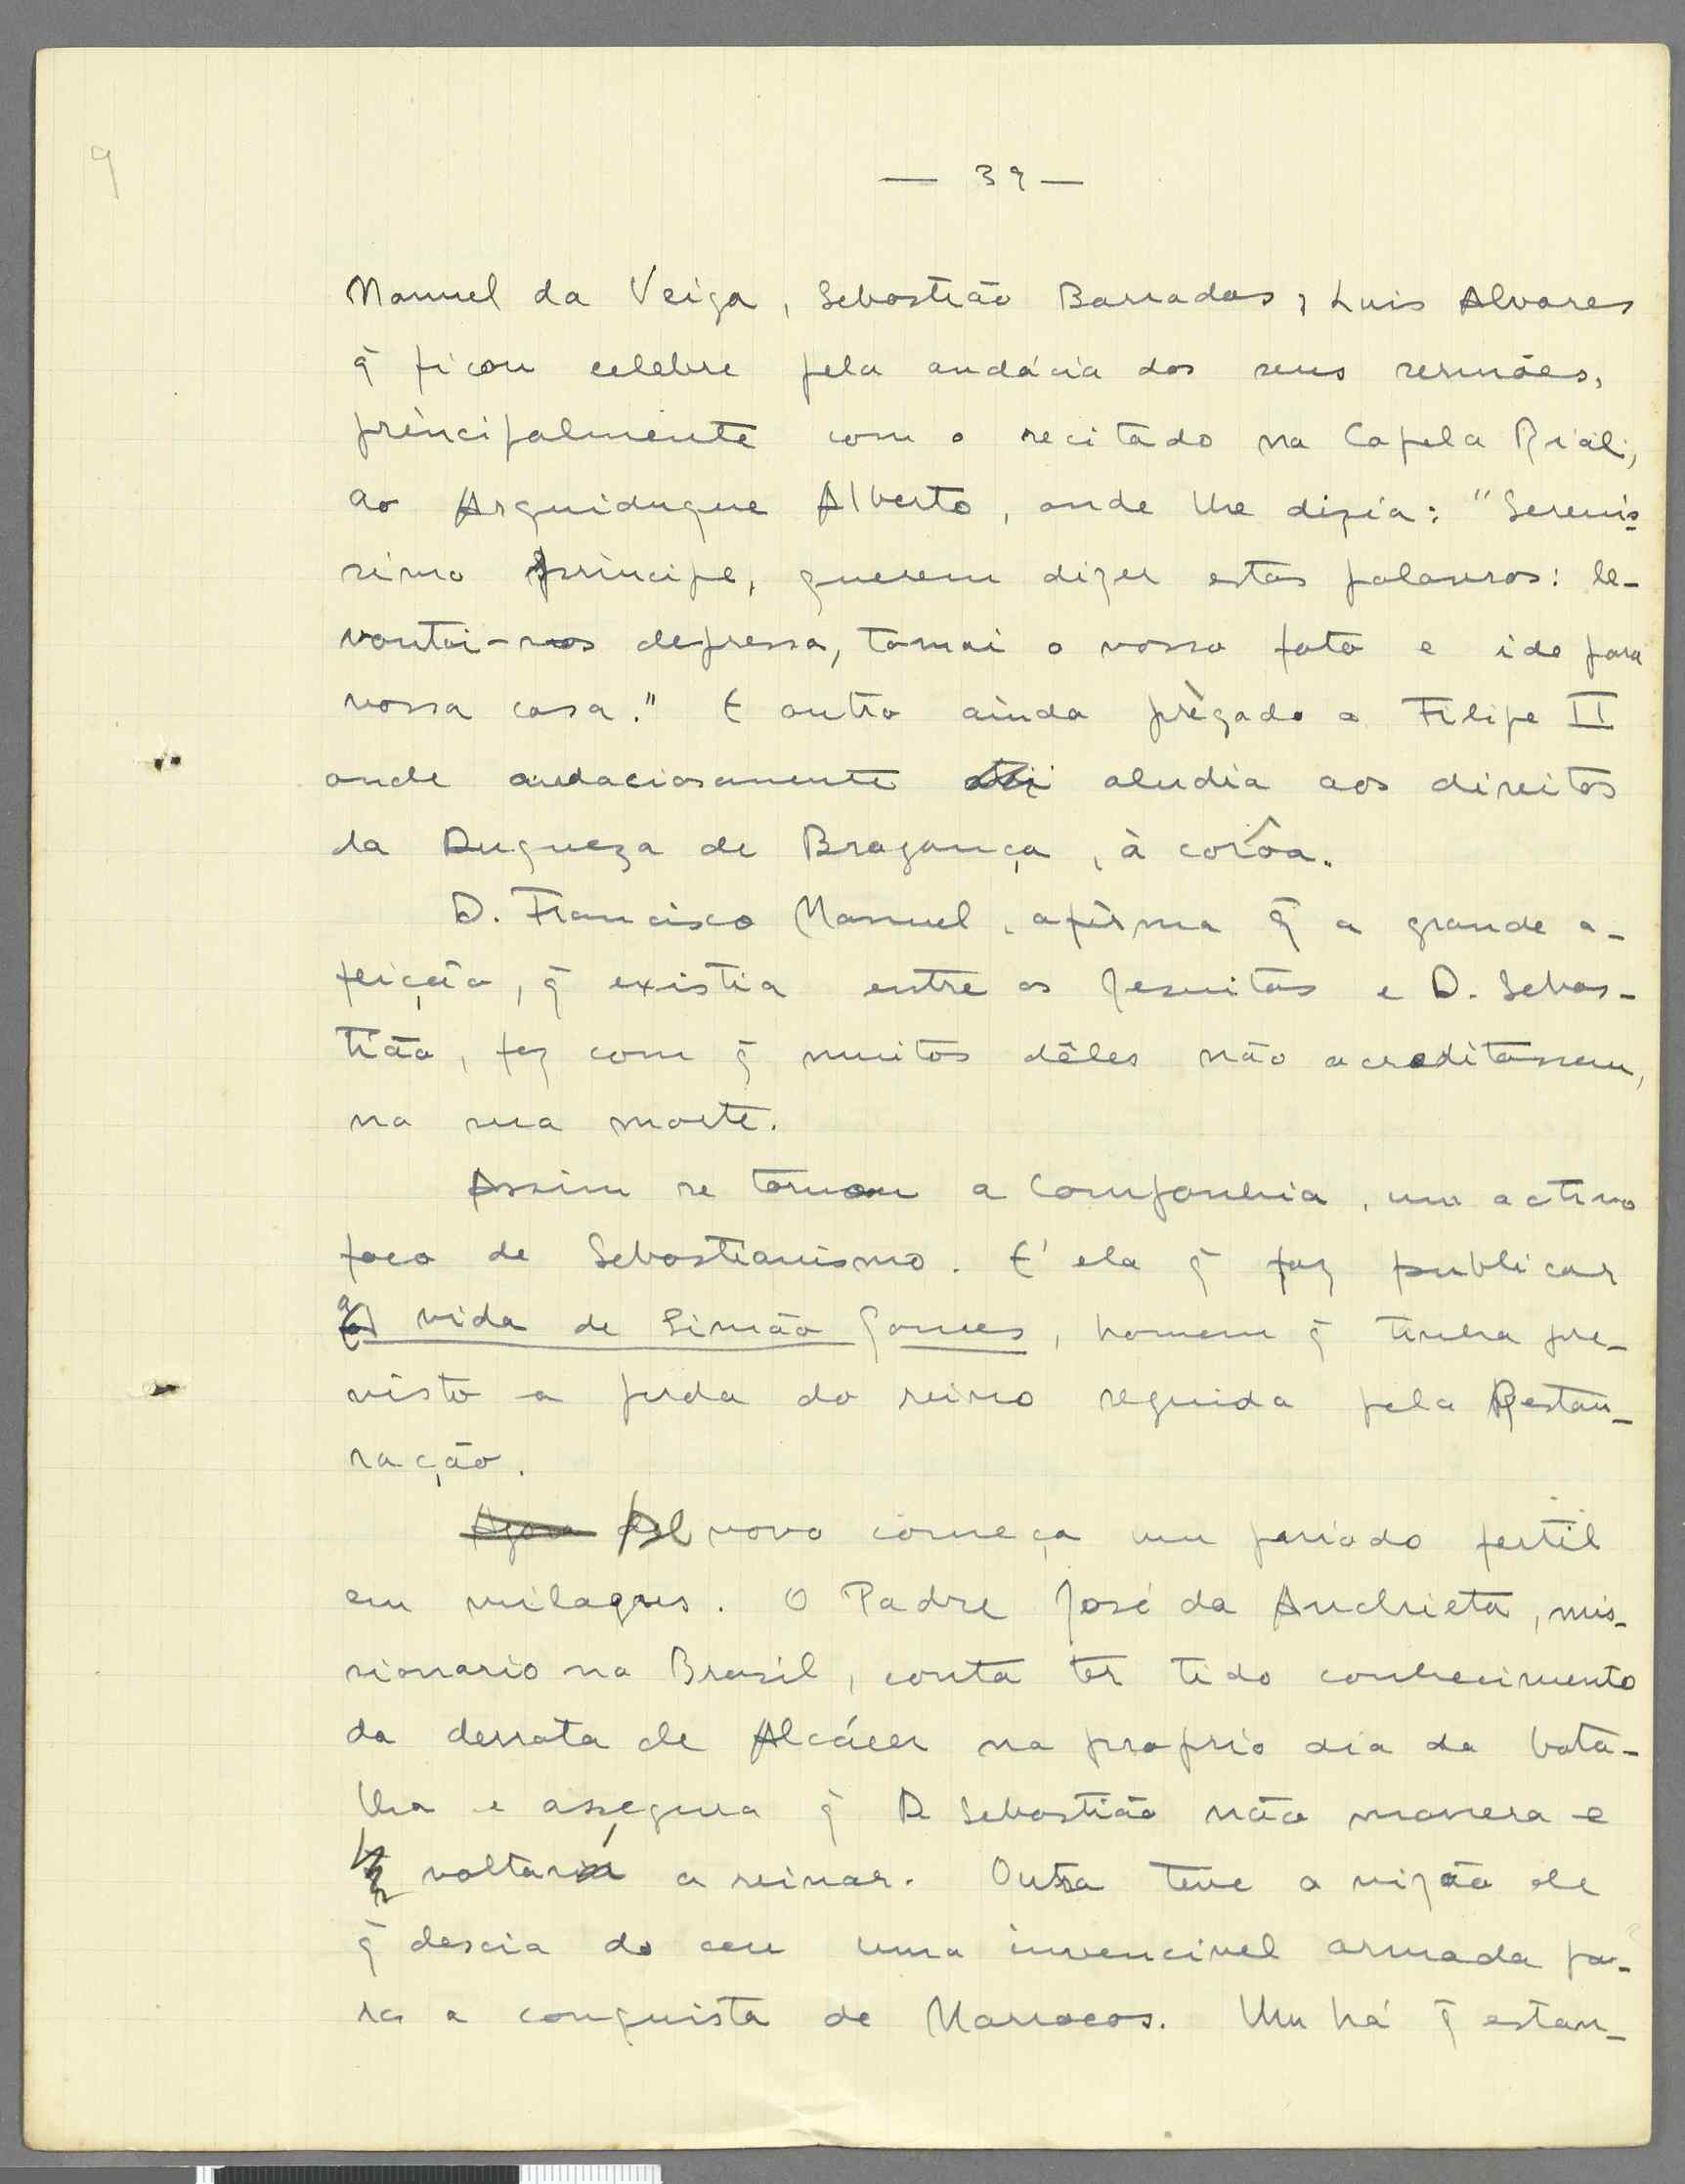 9
— 39 —
Manuel da Veiga, Sebastião Barradas, Luis Alvares
q̃ ficou celebre pela audácia dos seus sermões,
principalmente com o recitado na Capela Rial,
ao Arquiduque Alberto, onde lhe dizia: "Serenis-
simo principe, querem dizer estas palavras: le-
vantai-vos depressa, tomai o vosso fato e ide para
vossa casa." E outro ainda prègado a Filipe II
onde audaciosamente aludia aos direitos
da Duqueza de Bragança, à corôa.
D. Francisco Manuel, afirma q̃ a grande a-
feição, q̃ existia entre os Jesuitas e D. Sebas-
tião, fez com q̃ muitos dêles não acreditassem,
na sua morte.
Assim se tornou a Companhia, um activo
foco de Sebastianismo. E' ela q̃ faz publicar
a vida de Simão Gomes, homem q̃ tinha pre-
visto a perda do reino seguida pela Restau-
ração.
Agora De novo começa um periodo fertil
em milagres. O Padre José da Anchieta, mis-
sionario no Brasil, conta ter tido conhecimento
da derrota de Alcácer no proprio dia da bata-
lha e assegura q̃ D Sebastião não morrera e
voltará a reinar. Outra teve a vizão de
q̃ descia do ceu uma invencivel armada pa-
ra a conquista de Marrocos. Um há q̃ estan-